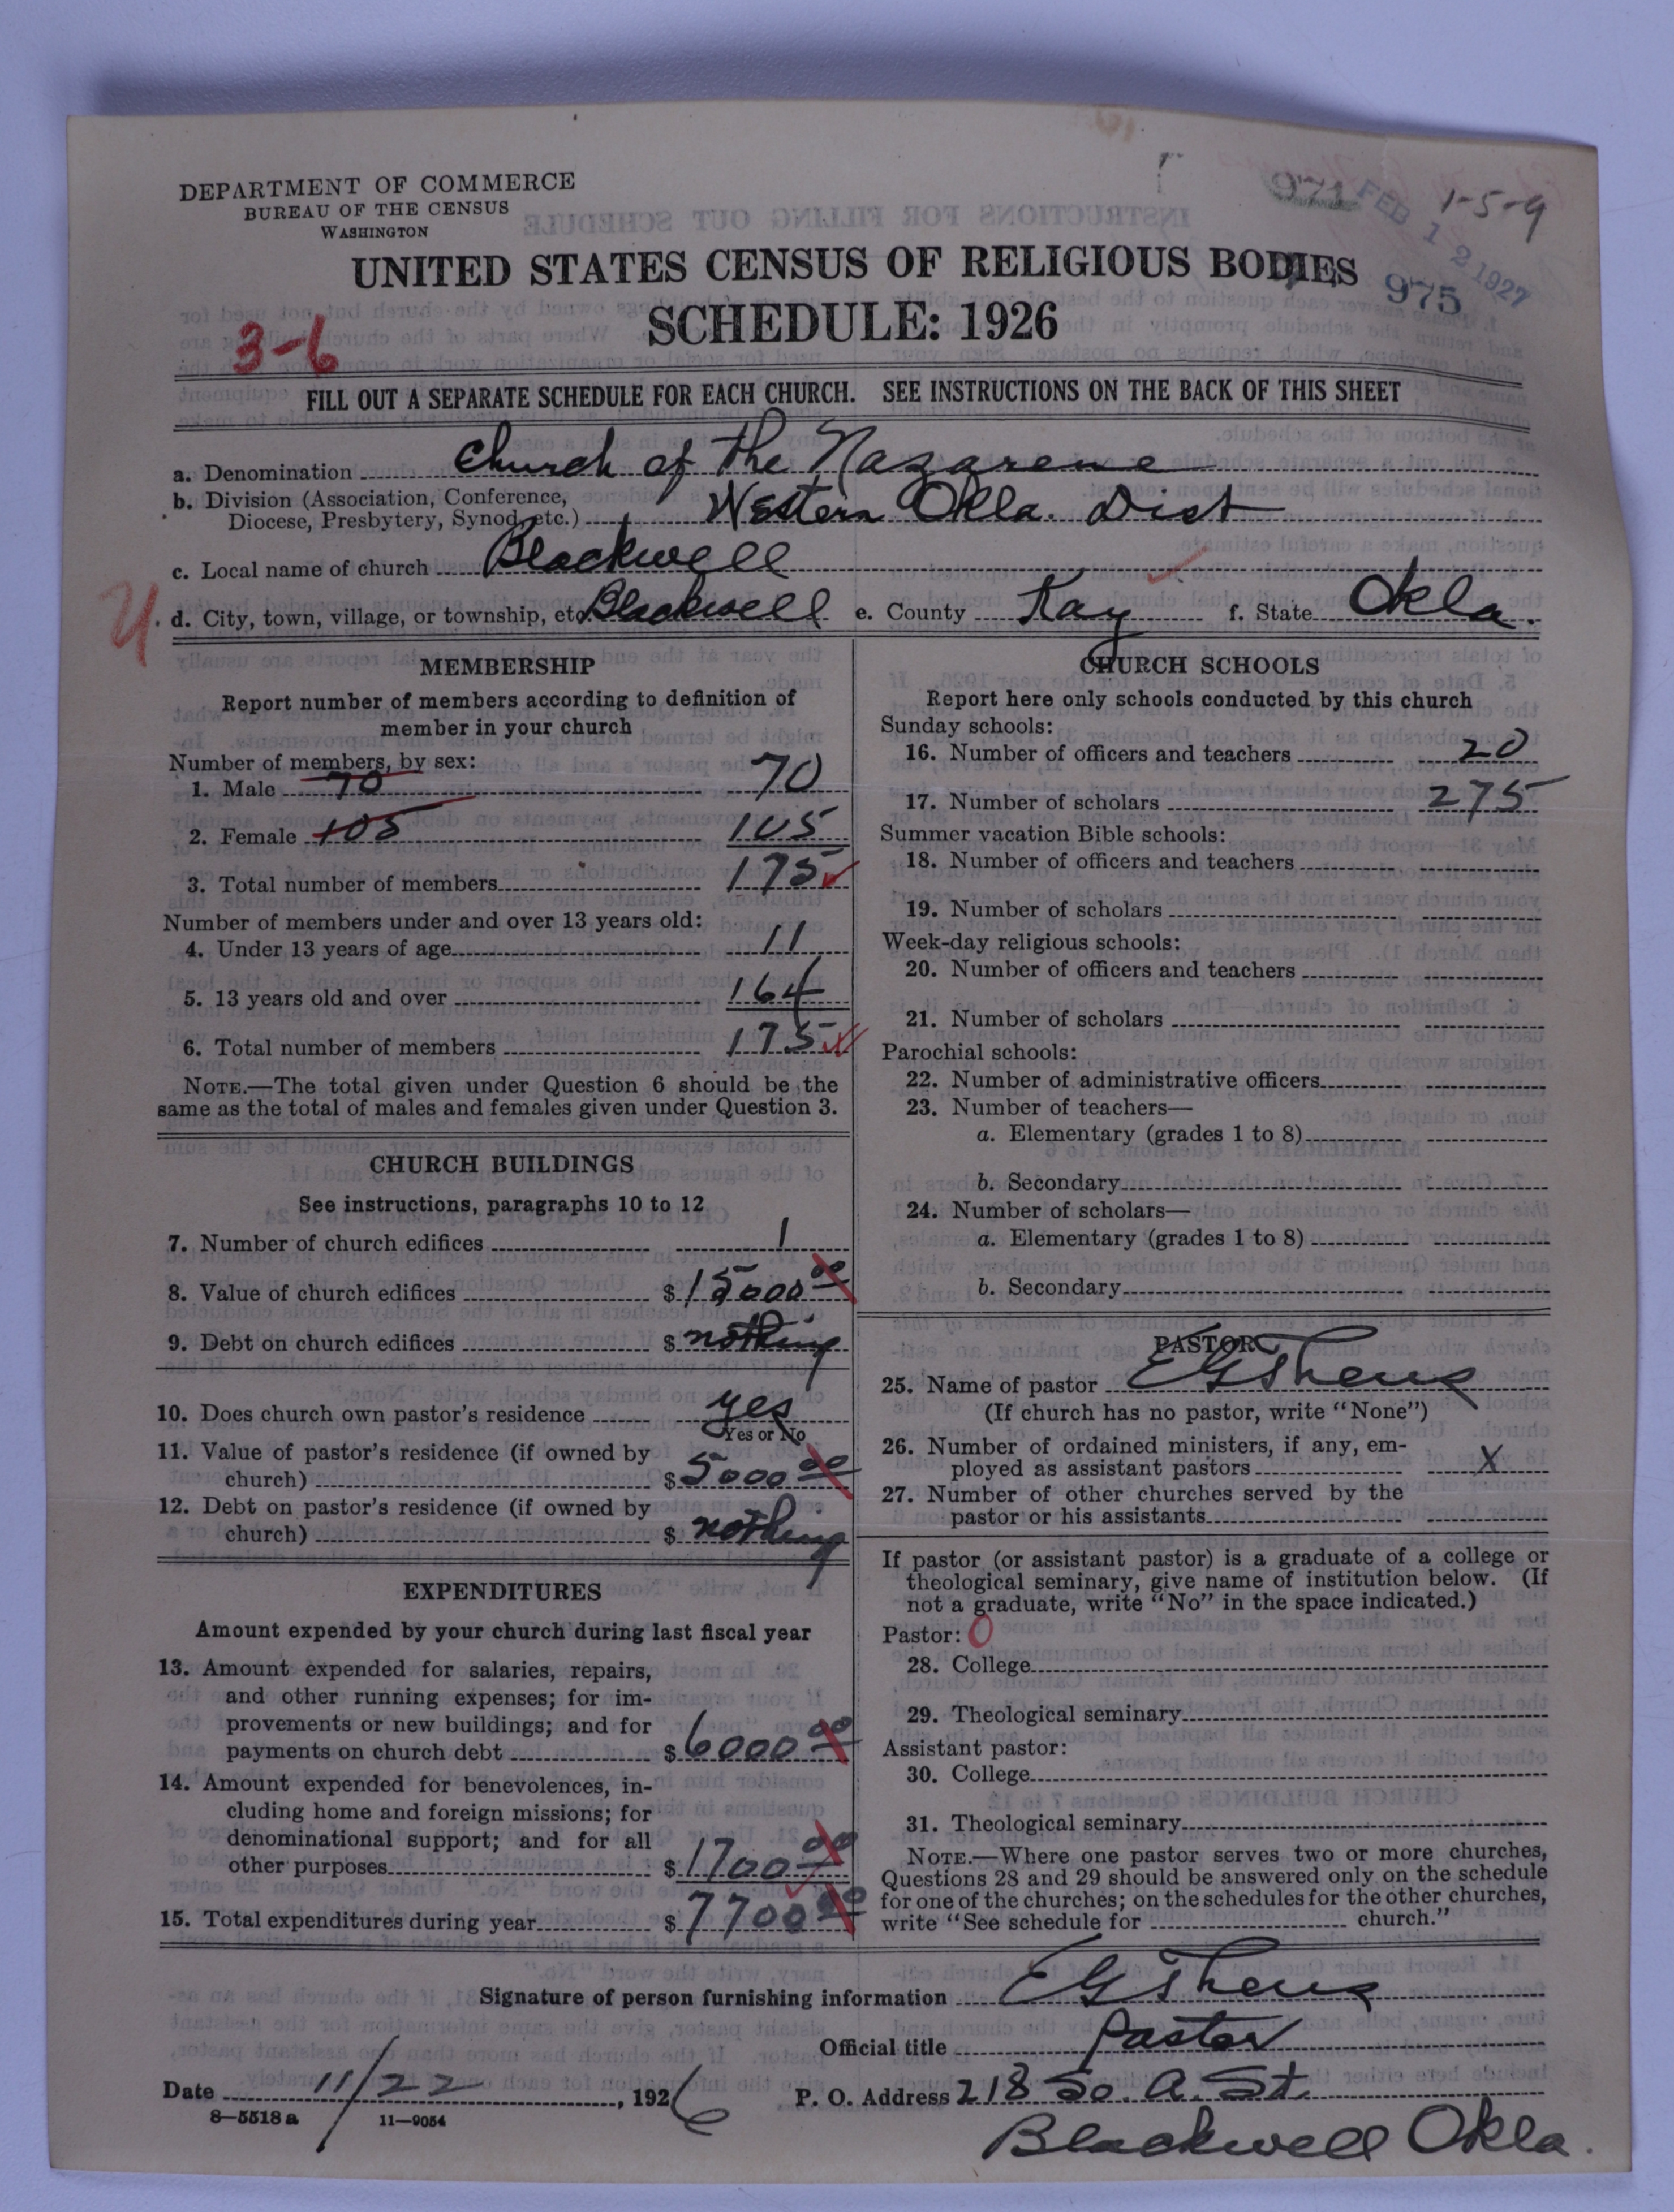 DEPARTMENT OF COMMERCE
BUREAU OF THE CENSUS
WASHINGTON
971
FEB 12 1927
1-5-9
975
UNITED STATES CENSUS OF RELIGIOUS BODIES
SCHEDULE: 1926
3-6
FILL OUT A SEPARATE SCHEDULE FOR EACH CHURCH. SEE INSTRUCTIONS ON THE BACK OF THIS SHEET
a. Denomination Church of the Nazarene
b. Division (Association, Conference,
Diocese, Presbytery, Synod, etc.) Western Okla. Dist
c. Local name of church Blackwell
d. City, town, village, or township, etc. Blackwell e. County Kay f. State Okla.
MEMBERSHIP
Report number of members according to definition of
member in your church
Number of members, by sex:
1. Male 70 70
2. Female 105 105
3. Total number of members 175
Number of members under and over 13 years old:
4. Under 13 years of age 11
5. 13 years old and over 164
6. Total number of members 175
NOTE.—The total given under Question 6 should be the
same as the total of males and females given under Question 3.
CHURCH BUILDINGS
See instructions, paragraphs 10 to 12
7. Number of church edifices 1
8. Value of church edifices $15000 00
9. Debt on church edifices $ nothing
10. Does church own pastor's residence yes
Yes or No
11. Value of pastor's residence (if owned by
church) $5000 00
12. Debt on pastor's residence (if owned by
church) $ nothing
EXPENDITURES
Amount expended by your church during last fiscal year
13. Amount expended for salaries, repairs,
and other running expenses; for im-
provements or new buildings; and for
payments on church debt $6000 00
14. Amount expended for benevolences, in-
cluding home and foreign missions; for
denominational support; and for all
other purposes $1700 00
15. Total expenditures during year $7700 00
CHURCH SCHOOLS
Report here only schools conducted by this church
Sunday schools:
16. Number of officers and teachers 20
17. Number of scholars 275
Summer vacation Bible schools:
18. Number of officers and teachers
19. Number of scholars
Week-day religious schools:
20. Number of officers and teachers
21. Number of scholars
Parochial schools:
22. Number of administrative officers
23. Number of teachers—
a. Elementary (grades 1 to 8)
b. Secondary
24. Number of scholars—
a. Elementary (grades 1 to 8)
b. Secondary
PASTOR
25. Name of pastor E G Theus
(If church has no pastor, write "None")
26. Number of ordained ministers, if any, em-
ployed as assistant pastors X
27. Number of other churches served by the
pastor or his assistants
If pastor (or assistant pastor) is a graduate of a college or
theological seminary, give name of institution below. (If
not a graduate, write "No" in the space indicated.)
Pastor: 0
28. College
29. Theological seminary
Assistant pastor:
30. College
31. Theological seminary
NOTE.—Where one pastor serves two or more churches,
Questions 28 and 29 should be answered only on the schedule
for one of the churches; on the schedules for the other churches,
write "See schedule for church."
Signature of person furnishing information E G Theus
Official title Pastor
Date 11/22, 1926 P. O. Address 218 So. A. St.
8—5518a 11—9054
Blackwell Okla.